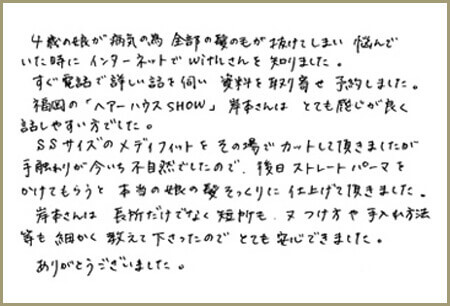 4歳の娘が病気の為 全部の髪の毛が抜けてしまい 悩んで
いた時に インターネットで withじさんを知りました。
すぐ電話で詳しい話を伺い 資料を取り寄せ 予約しました。
福岡の「ヘアーハウスSHOW」岸本さんは とても感じが良く
話しやすい方でした。
SSサイズのメディフィットを その場でカットして頂きましたが
手触わりが今いち不自然でしたので、後日ストレートパーマを
かけてもらうと 本当の娘の髪そっくりに 仕上げて頂きました。
岸本さんは 長所だけでなく短所も、又つけ方や 手入れ方法
等も 細かく教えて下さったので とても安心できました。
ありがとうございました。